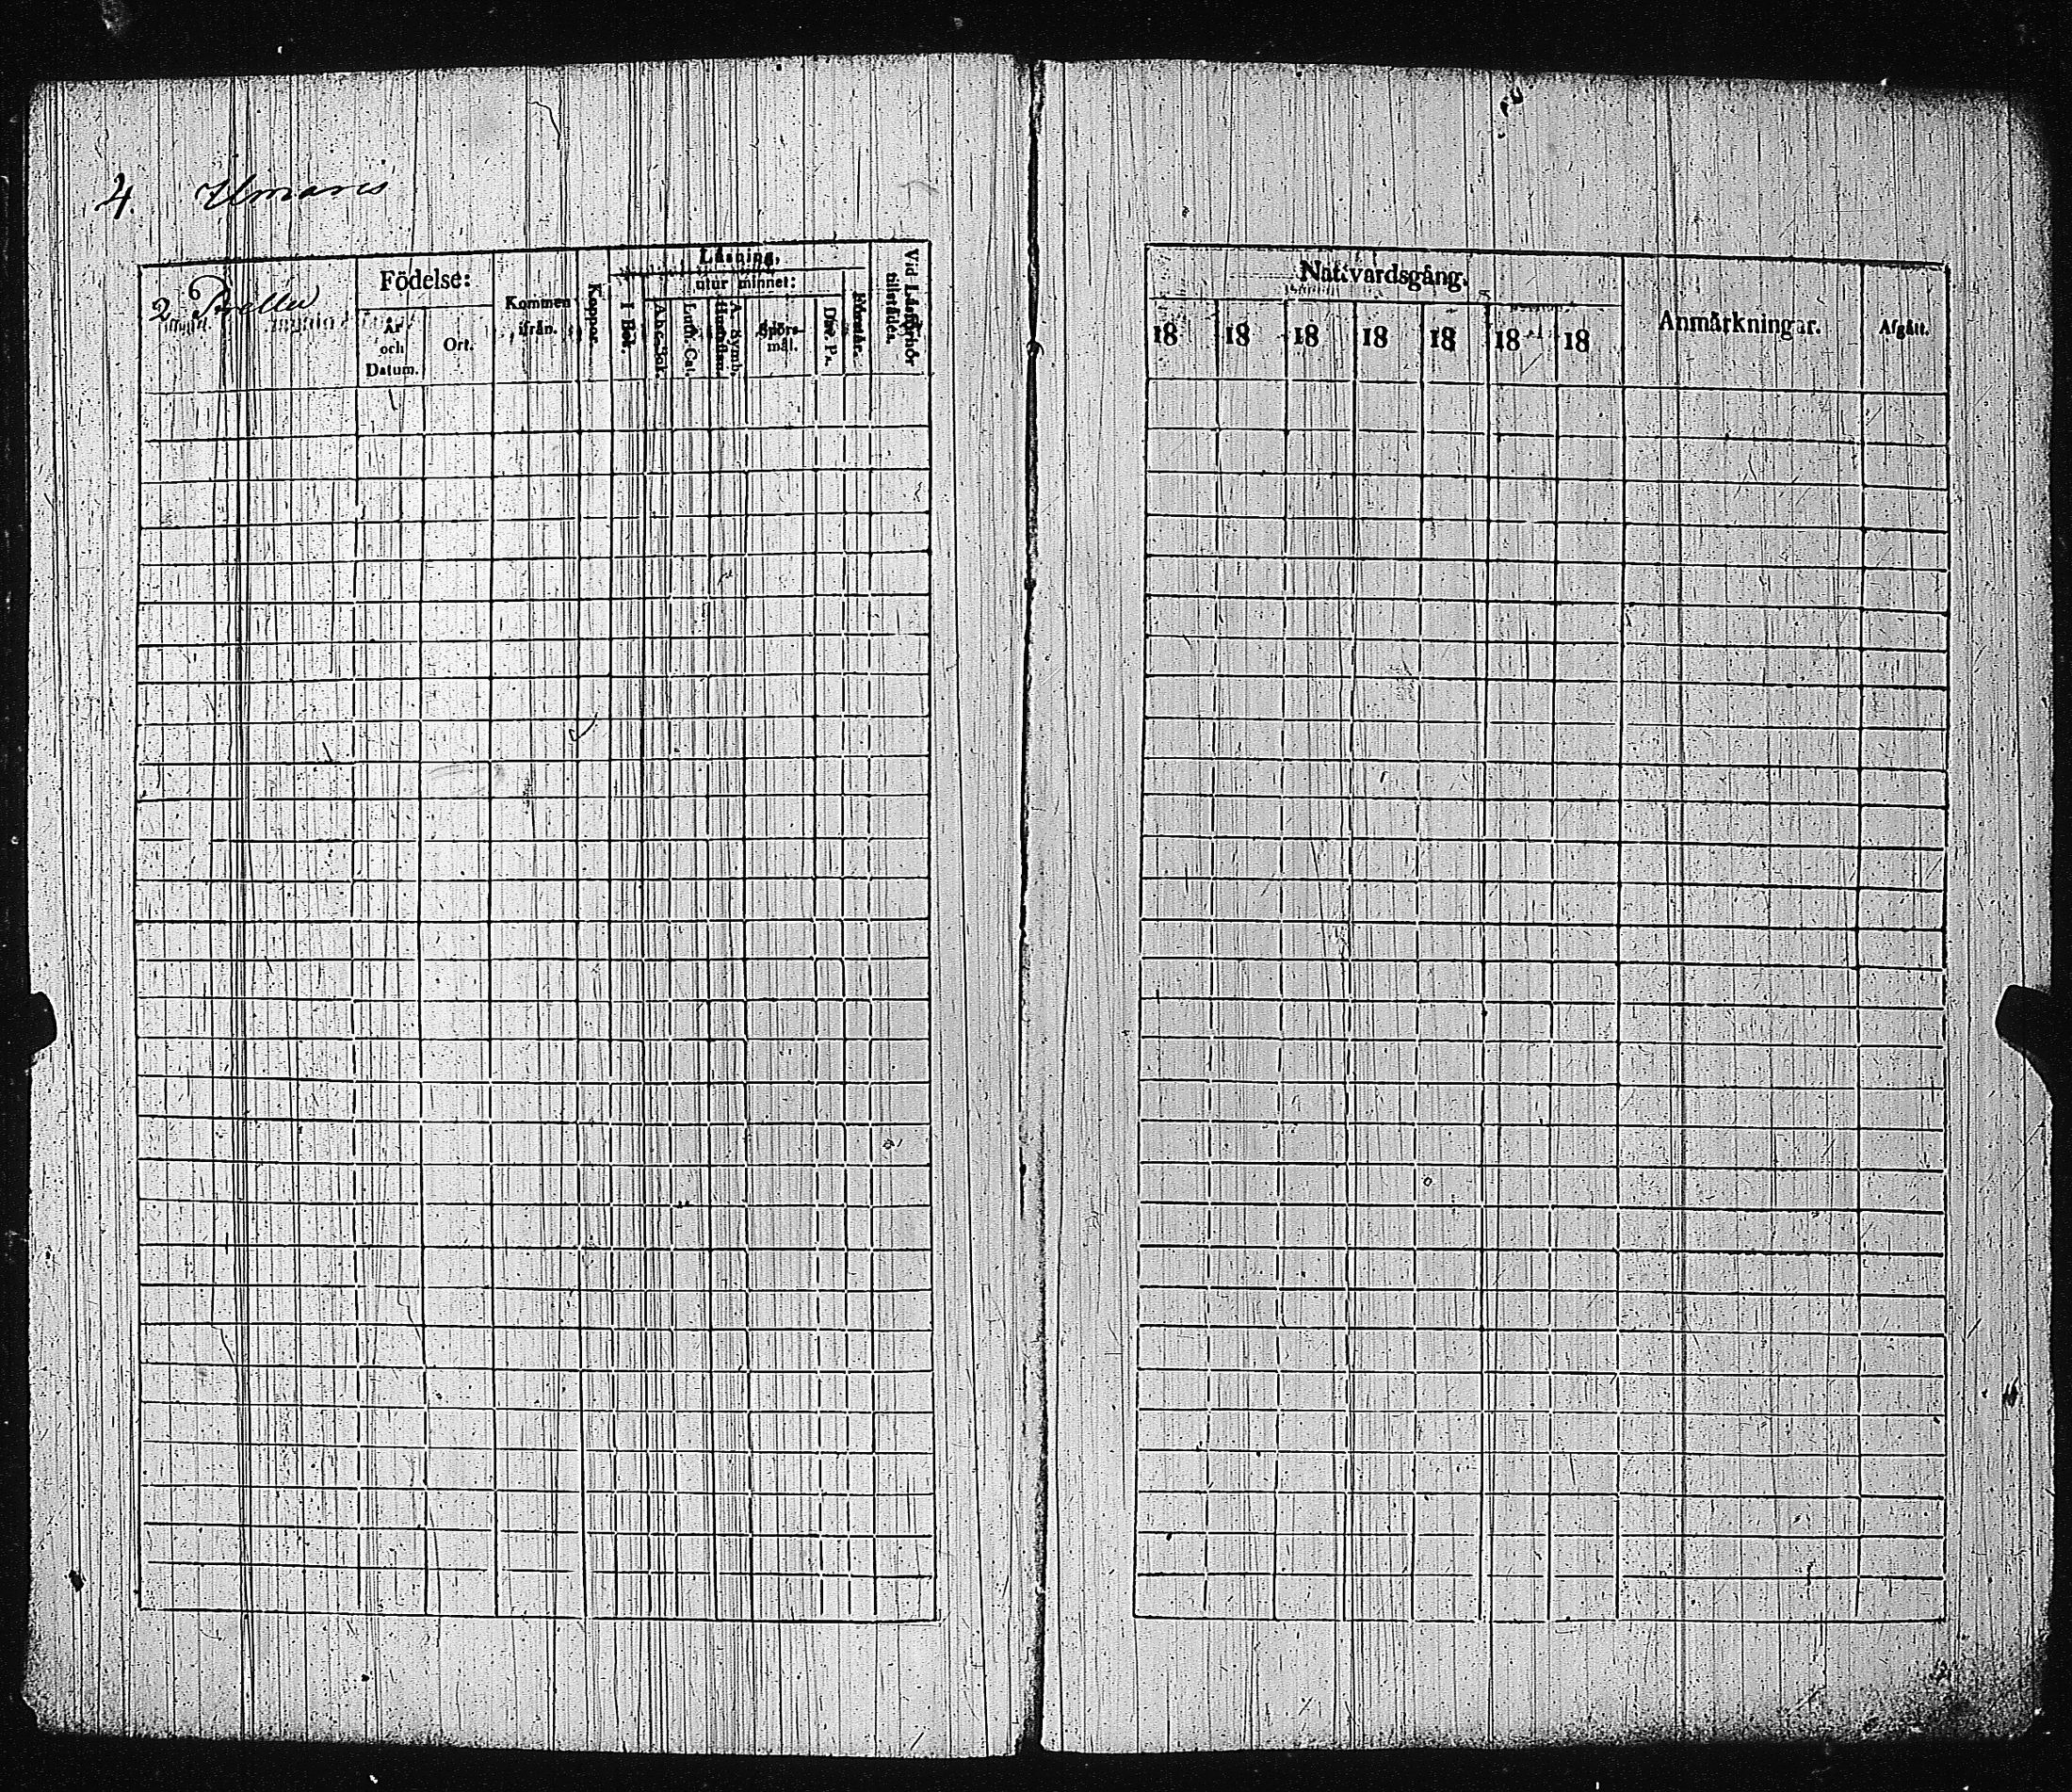 4. Ilmaris
2. Pvellu
Födelse:
År och Datum.
Ort.
Kommen ifrån.
Koppor.
Läsning,
I Bok.
utur minnet:
Abc-Bok.
Luth. Cat.
Hustaflan.
A. Symb.
Spörsmål.
Dav. Ps.
Förstår.
Vid Läsförhör tillstädes.
Nattvardsgång.
18 18 18 18 18 18 18
Anmärkningar.
Afgått.